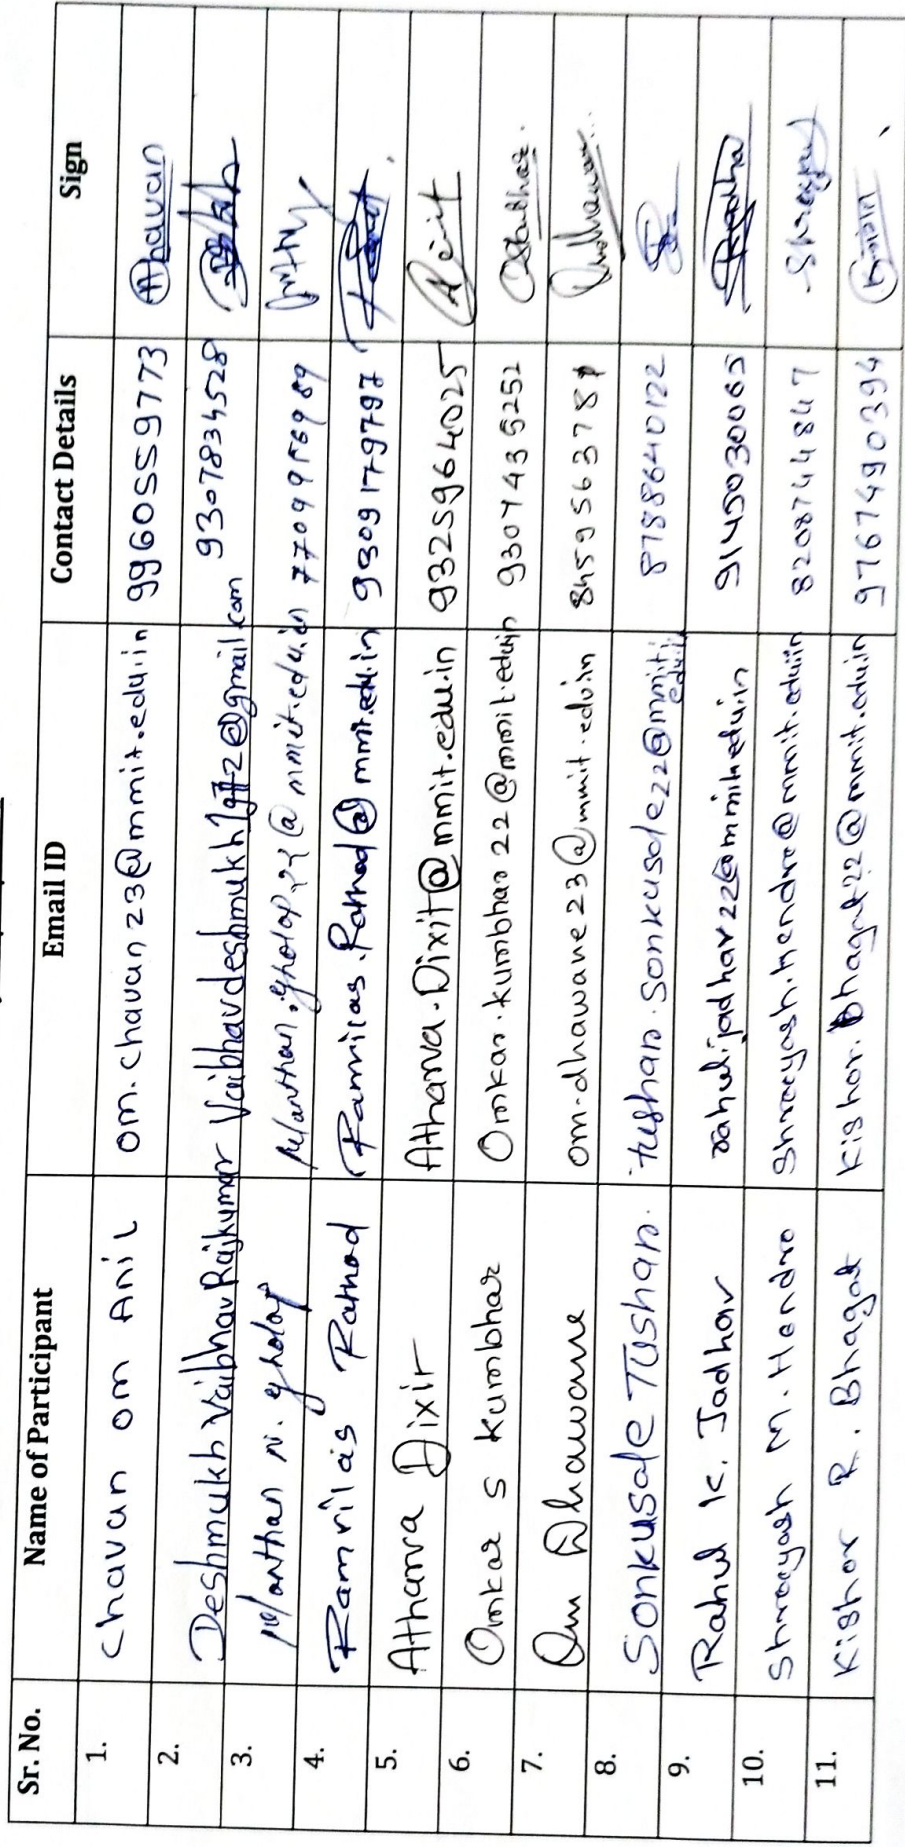 Sr. No. Name of Participant Email ID Contact Details Sign
1. Chavan om Anil om.chavan23@mmit.edu.in 9960559773 Ahavan
2. Deshmukh Vaibhav Rajkumar Vaibhavdeshmukh1972@gmail.com 9307834528
3. Manthan N. gholap Manthan.gholap22@mmit.edu.in 7709956989
4. Ramnilas Rathod Ramnilas.Rathod@mmit.edu.in 9309179797
5. Atharva Dixit Atharva.Dixit@mmit.edu.in 9325964025
6. Omkar S Kumbhar Omkar.kumbhar22@mmit.edu.in 9307435252
7. Om Dhawane om.dhawane23@mmit.edu.in 8459563781
8. Sonkusale Tushar. tushar.sonkusale22@mmit.edu.in 8788640122
9. Rahul K. Jadhav rahul.jadhav22@mmit.edu.in 9145030065
10. Shreeyash M. Hendre Shreeyash.hendre@mmit.edu.in 8208744847
11. Kishor R. Bhagat Kishor.Bhagat22@mmit.edu.in 9767490394